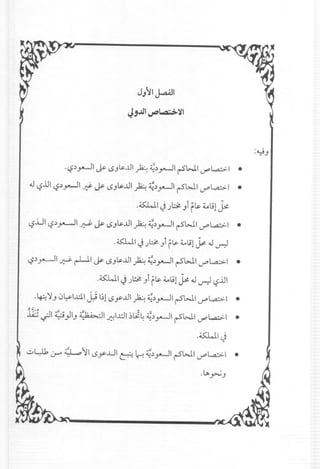 الفصل الأول
الاختصاص الدولي
وفيه:
• اختصاص المحاكم السعودية بنظر الدعاوى على السعودي.
• اختصاص المحاكم السعودية بنظر الدعاوى على غير السعودي الذي له
محل إقامة عام أو مختار في المملكة.
• اختصاص المحاكم السعودية بنظر الدعاوى على غير السعودي الذي
ليس له محل إقامة عام أو مختار في المملكة.
• اختصاص المحاكم السعودية بنظر الدعاوى على المسلم غير السعودي
الذي ليس له محل إقامة عام أو مختار في المملكة.
• اختصاص المحاكم السعودية بنظر الدعوى إذا قبل المتداعيان ولايتها.
• اختصاص المحاكم السعودية باتخاذ التدابير التحفظية والوقتية التي تنفذ
في المملكة.
• اختصاص المحاكم السعودية بما يتبع الدعوى الأصلية من طلبات
ونحوها.